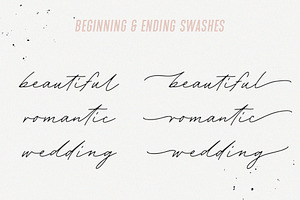 BEGINNING & ENDING SWASHES
beautiful beautiful
romantic romantic
wedding wedding